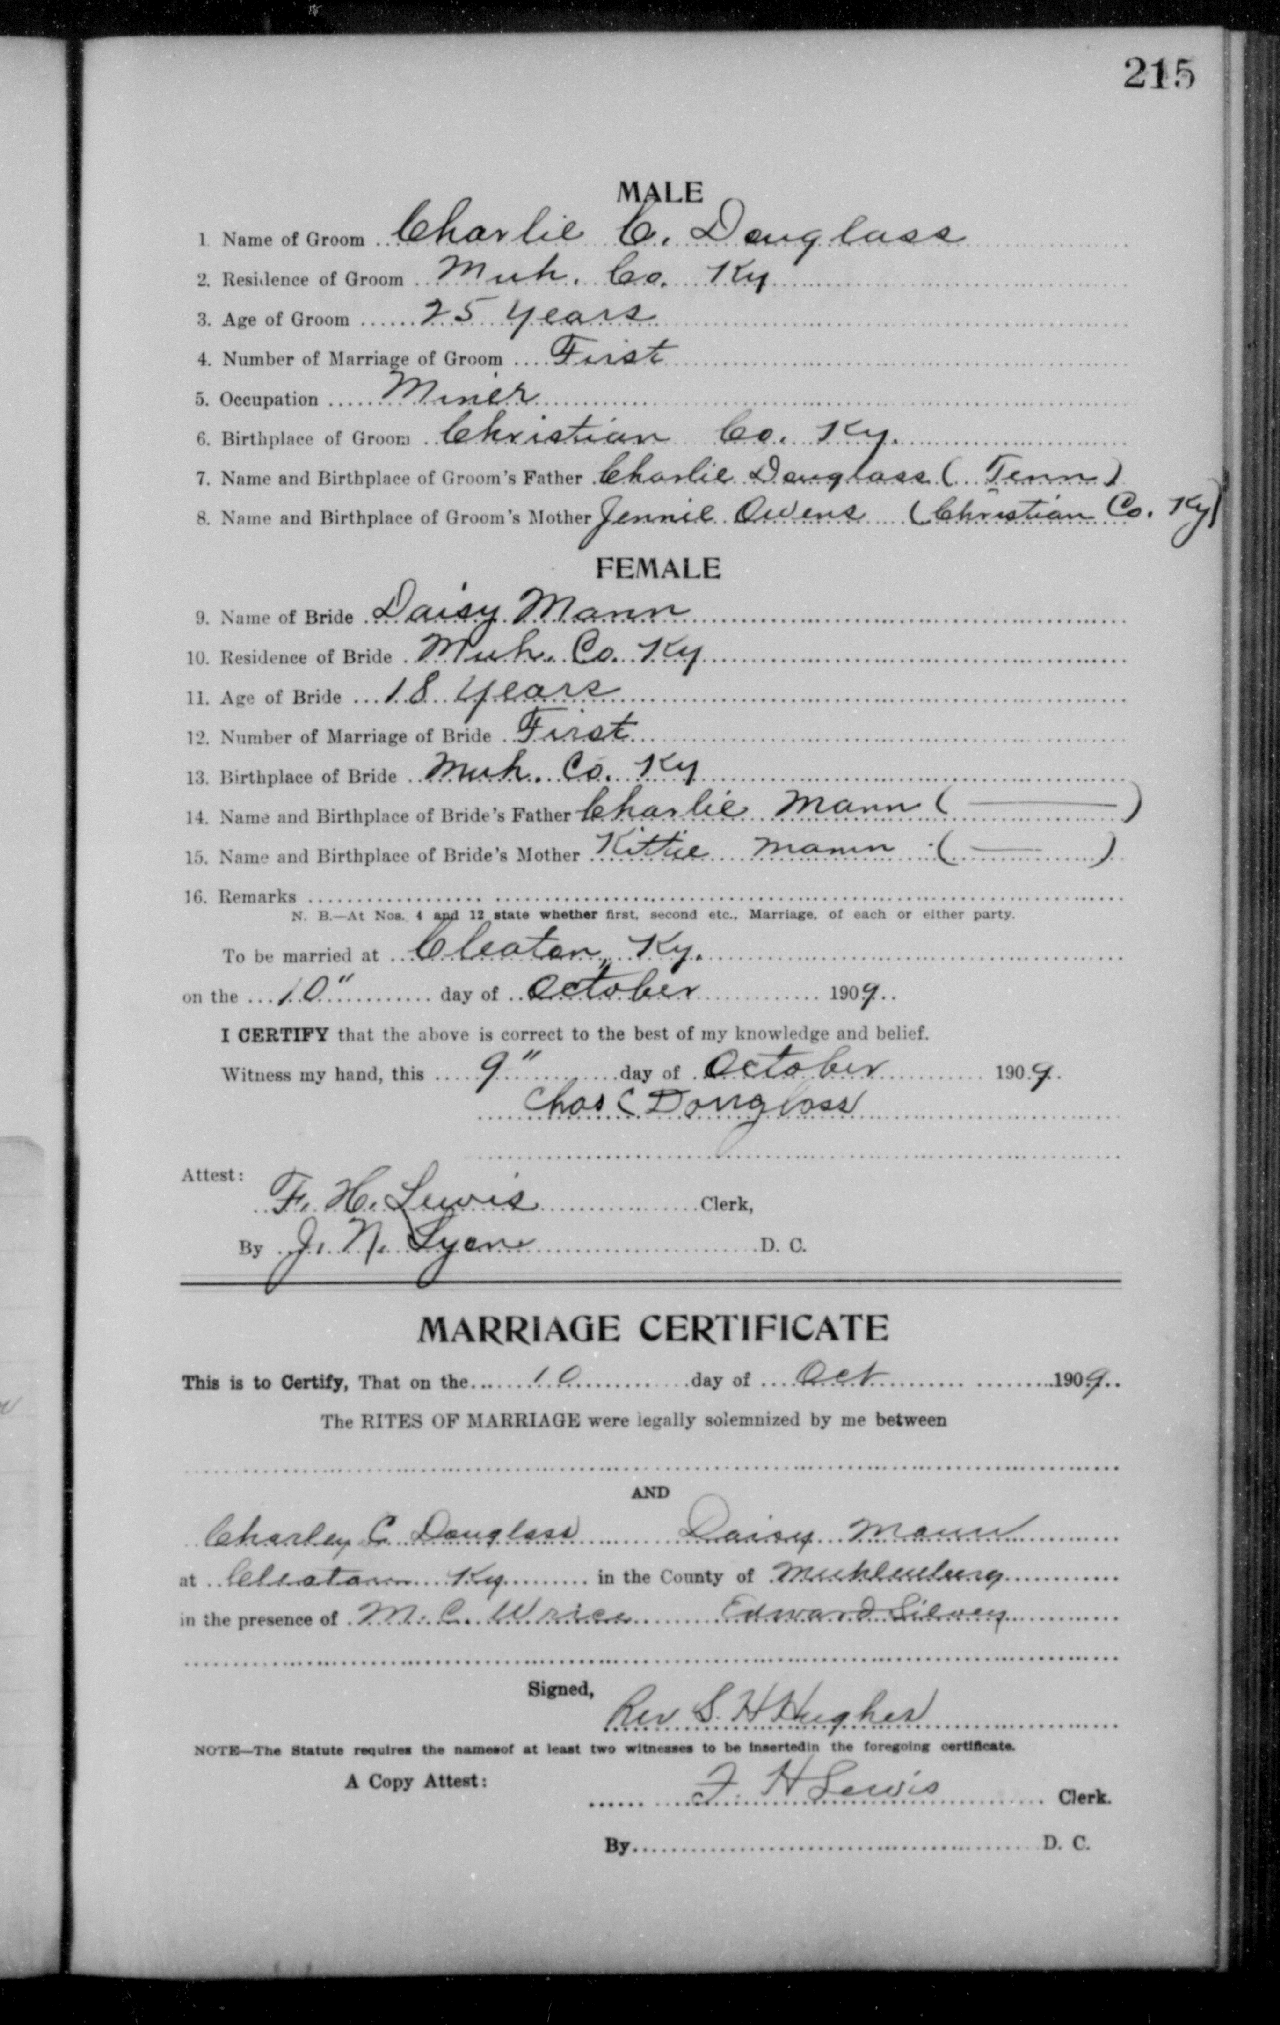 215
MALE
1 Name of Groom Charlie C. Douglass
2. Residence of Groom Muh. Co. Ky
3. Age of Groom 25 years
4. Number of Marriage of Groom First
5. Occupation Miner
6. Birthplace of Groom Christian Co. Ky.
7. Name and Birthplace of Groom's Father Charlie Douglass (Tenn)
8. Name and Birthplace of Groom's Mother Jennie Owens (Christian Co. Ky)
FEMALE
9. Name of Bride Daisy Mann
10. Residence of Bride Muh. Co. Ky
11. Age of Bride 18 years
12. Number of Marriage of Bride First
13. Birthplace of Bride Muh. Co. Ky
14. Name and Birthplace of Bride's Father Charlie Mann (——)
15. Name and Birthplace of Bride's Mother Kittie Mann (——)
16. Remarks
N. B.—At Nos. 4 and 12 state whether first, second etc., Marriage, of each or either party.
To be married at Cleaton, Ky.
on the 10" day of October 1909.
I CERTIFY that the above is correct to the best of my knowledge and belief.
Witness my hand, this 9" day of October 1909.
Chas C Douglass
Attest:
F. H. Lewis Clerk,
By J. N. Lyon D. C.
MARRIAGE CERTIFICATE
This is to Certify, That on the 10 day of Oct 1909.
The RITES OF MARRIAGE were legally solemnized by me between
AND
Charley C Douglass Daisy Mann
at Cleaton Ky in the County of Muhlenburg
in the presence of M. C. Edward
Signed,
Rev S. H Hughes
NOTE—The Statute requires the namesof at least two witnesses to be insertedin the foregoing certificate.
A Copy Attest:
F. H Lewis Clerk.
By D. C.